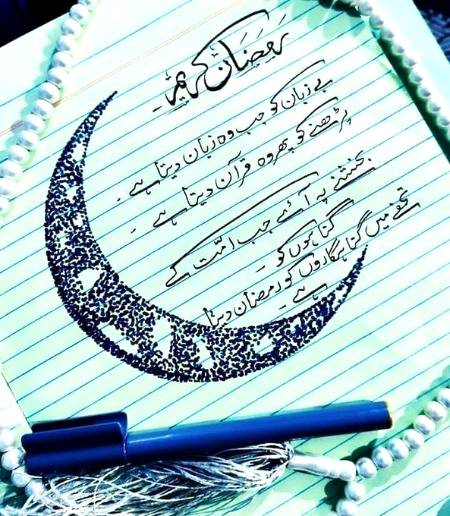 رَمَضَان کریم۔
بے زبان کو جب وہ زبان دیتا ہے ۔
پڑھنے کو پھر وہ قرآن دیتا ہے ۔
بخشنے پہ آئے جب امّت کے
گناہوں کو ۔
تحفے میں گناہگاروں کو رمضان دیتا
ہے ۔